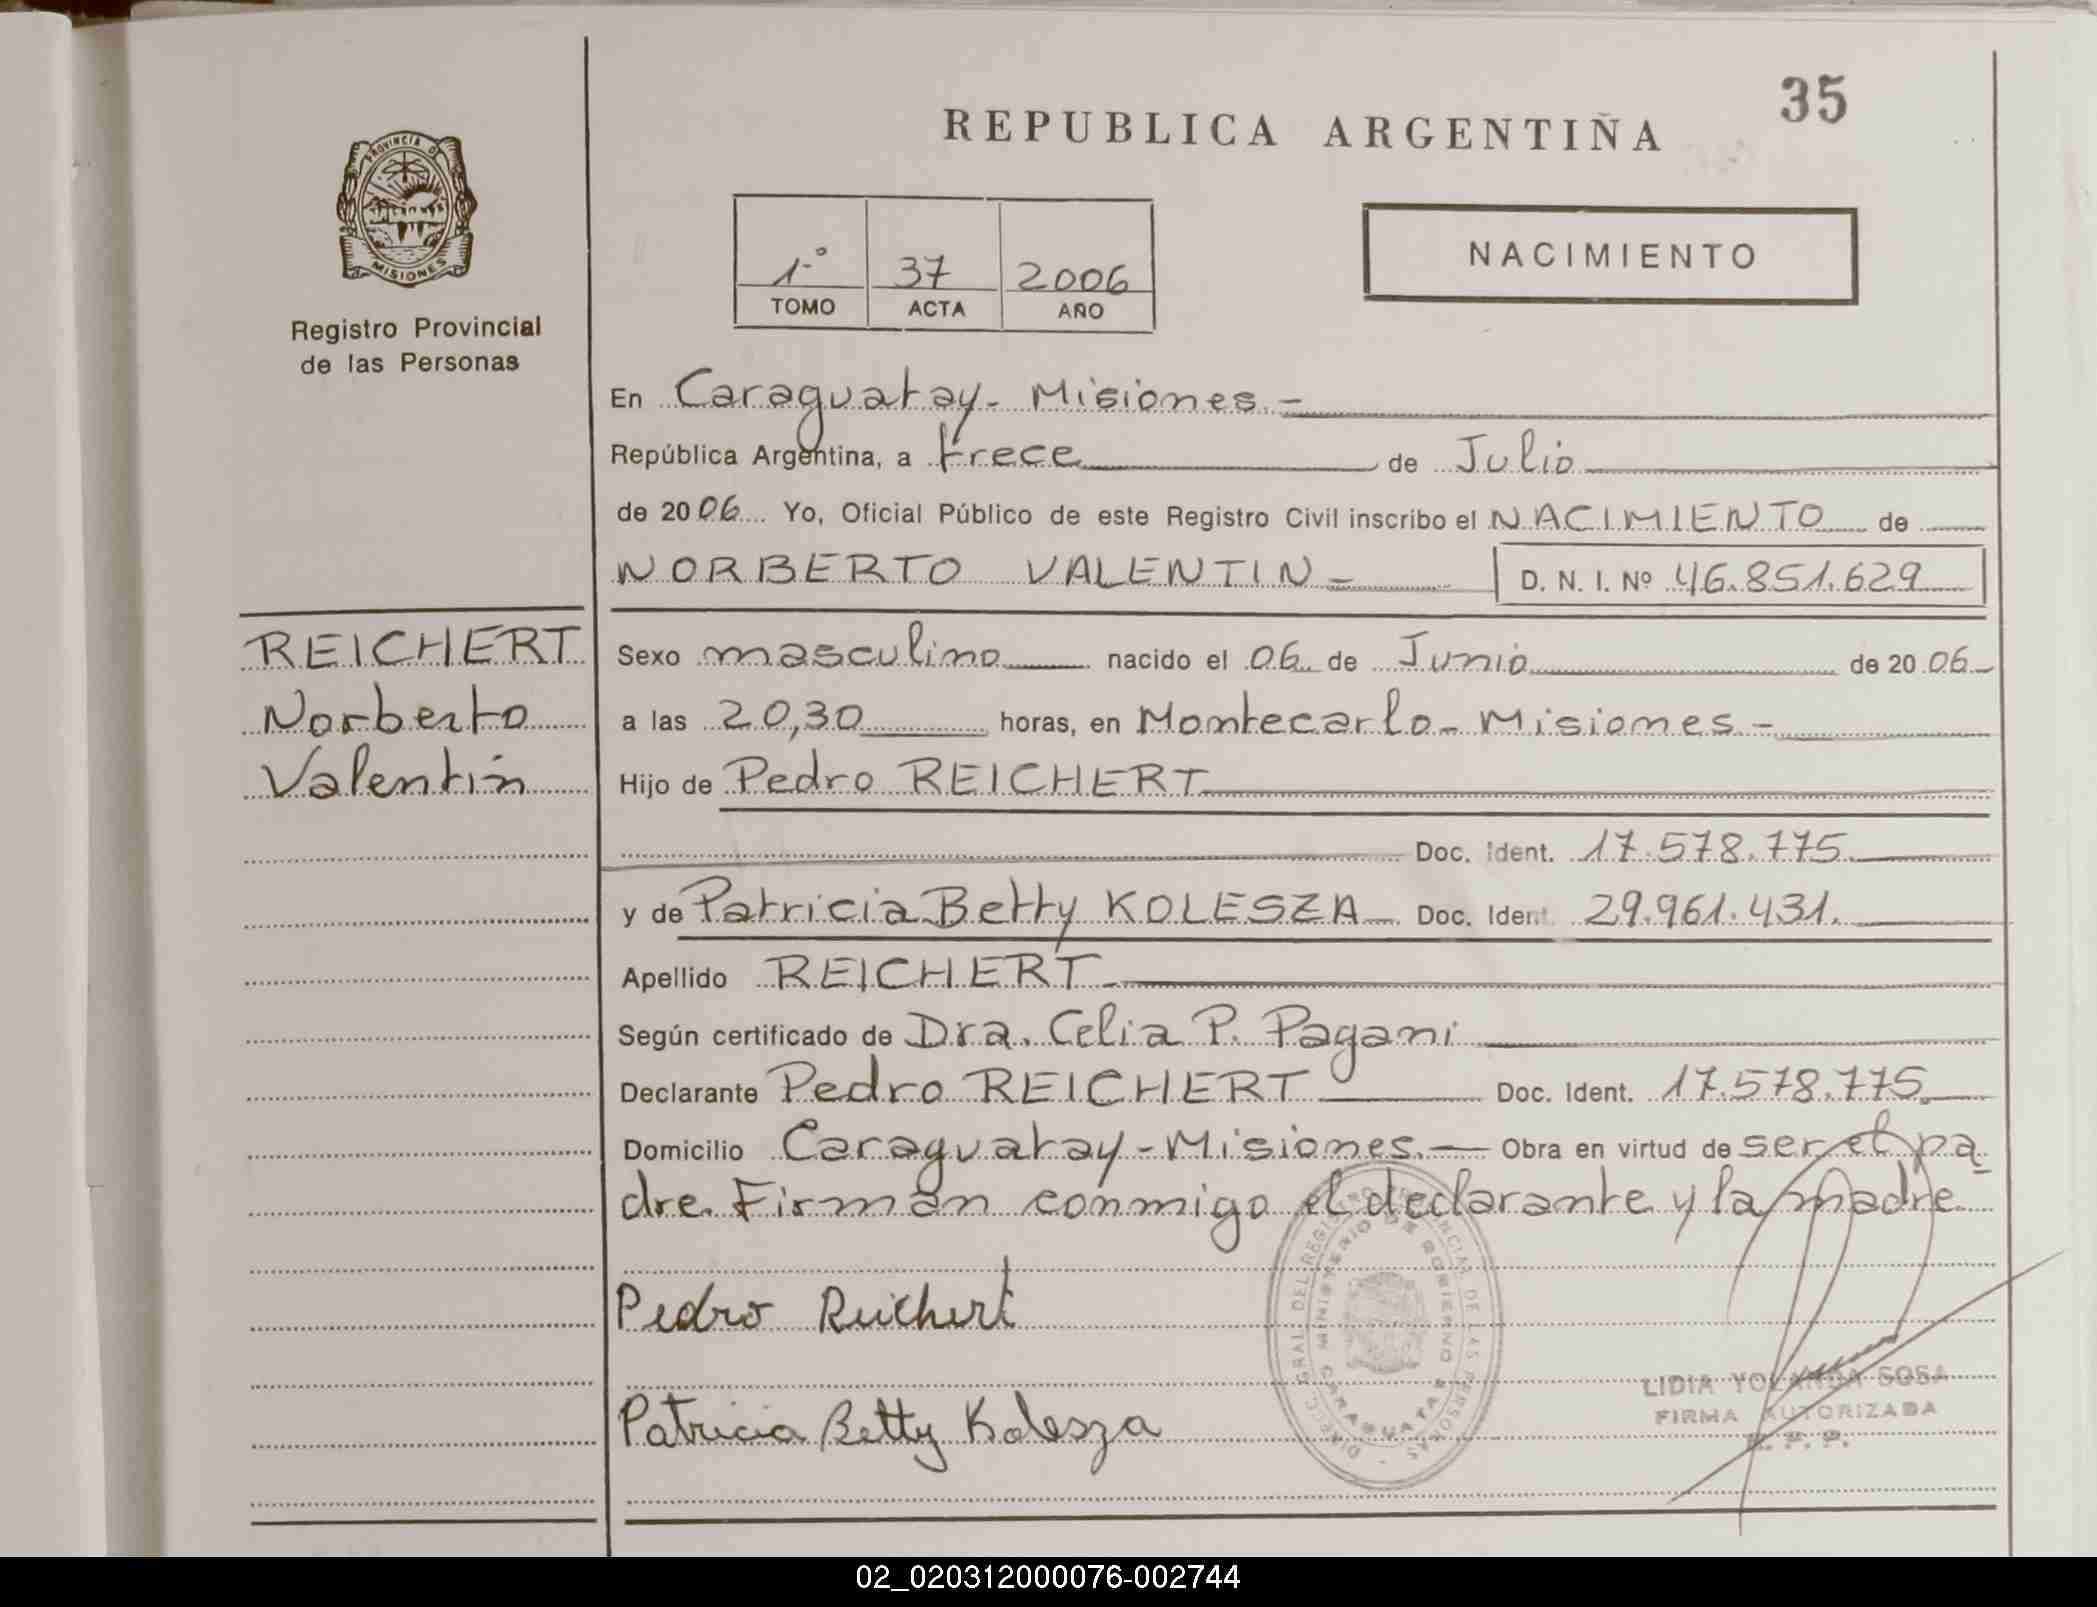 35
REPUBLICA ARGENTIÑA
PROVINCIA D
MISIONES
Registro Provincial
de las Personas
1.º 37 2006
TOMO ACTA AÑO
NACIMIENTO
En Caraguatay - Misiones -
República Argentina, a trece de Julio
de 2006 Yo, Oficial Público de este Registro Civil inscribo el NACIMIENTO de
NORBERTO VALENTIN - D. N. I. Nº 46.851.629
REICHERT
Norberto
Valentín
Sexo masculino nacido el 06 de Junio de 2006
a las 20,30 horas, en Montecarlo - Misiones -
Hijo de Pedro REICHERT
Doc. Ident. 17.578.775
y de Patricia Betty KOLESZA Doc. Ident. 29.961.431.
Apellido REICHERT
Según certificado de Dra. Celia P. Pagani
Declarante Pedro REICHERT Doc. Ident. 17.578.775.
Domicilio Caraguatay - Misiones. - Obra en virtud de ser el pa
dre. Firman conmigo el declarante y la madre
Pedro Reichert
Patricia Betty Kolesza
DIRECC. GRAL DEL REGISTRO PROVINCIAL DE LAS PERSONAS
MINISTERIO DE GOBIERNO
CARAGUATAY
LIDIA YOLANDA SOSA
FIRMA AUTORIZADA
R. P. P.
02_020312000076-002744